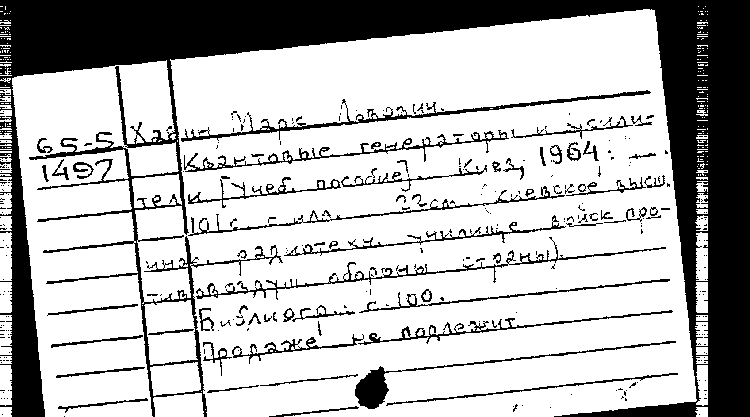 65-5 Хавин, Марк Львович.
1497 Квантовые генераторы и усили-
тели [Учеб. пособие]. Киев, 1964.
101 с. с илл. 22 см. (Киевское высш.
инж. радиотехн. училище войск про-
тивовоздуш. обороны страны).
Библиогр.: с. 100.
Продаже не подлежит